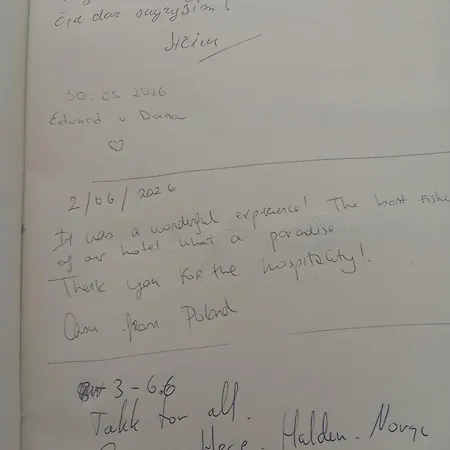 čia dar sugrįšim!
30.05.2026
Edvard u Diana
2/06/2026
It was a wonderful experience! The best
of our hotel what a paradise.
Thank you for the hospitality!
from Poland
3-6.6
Takk for all.
Halden. Norge